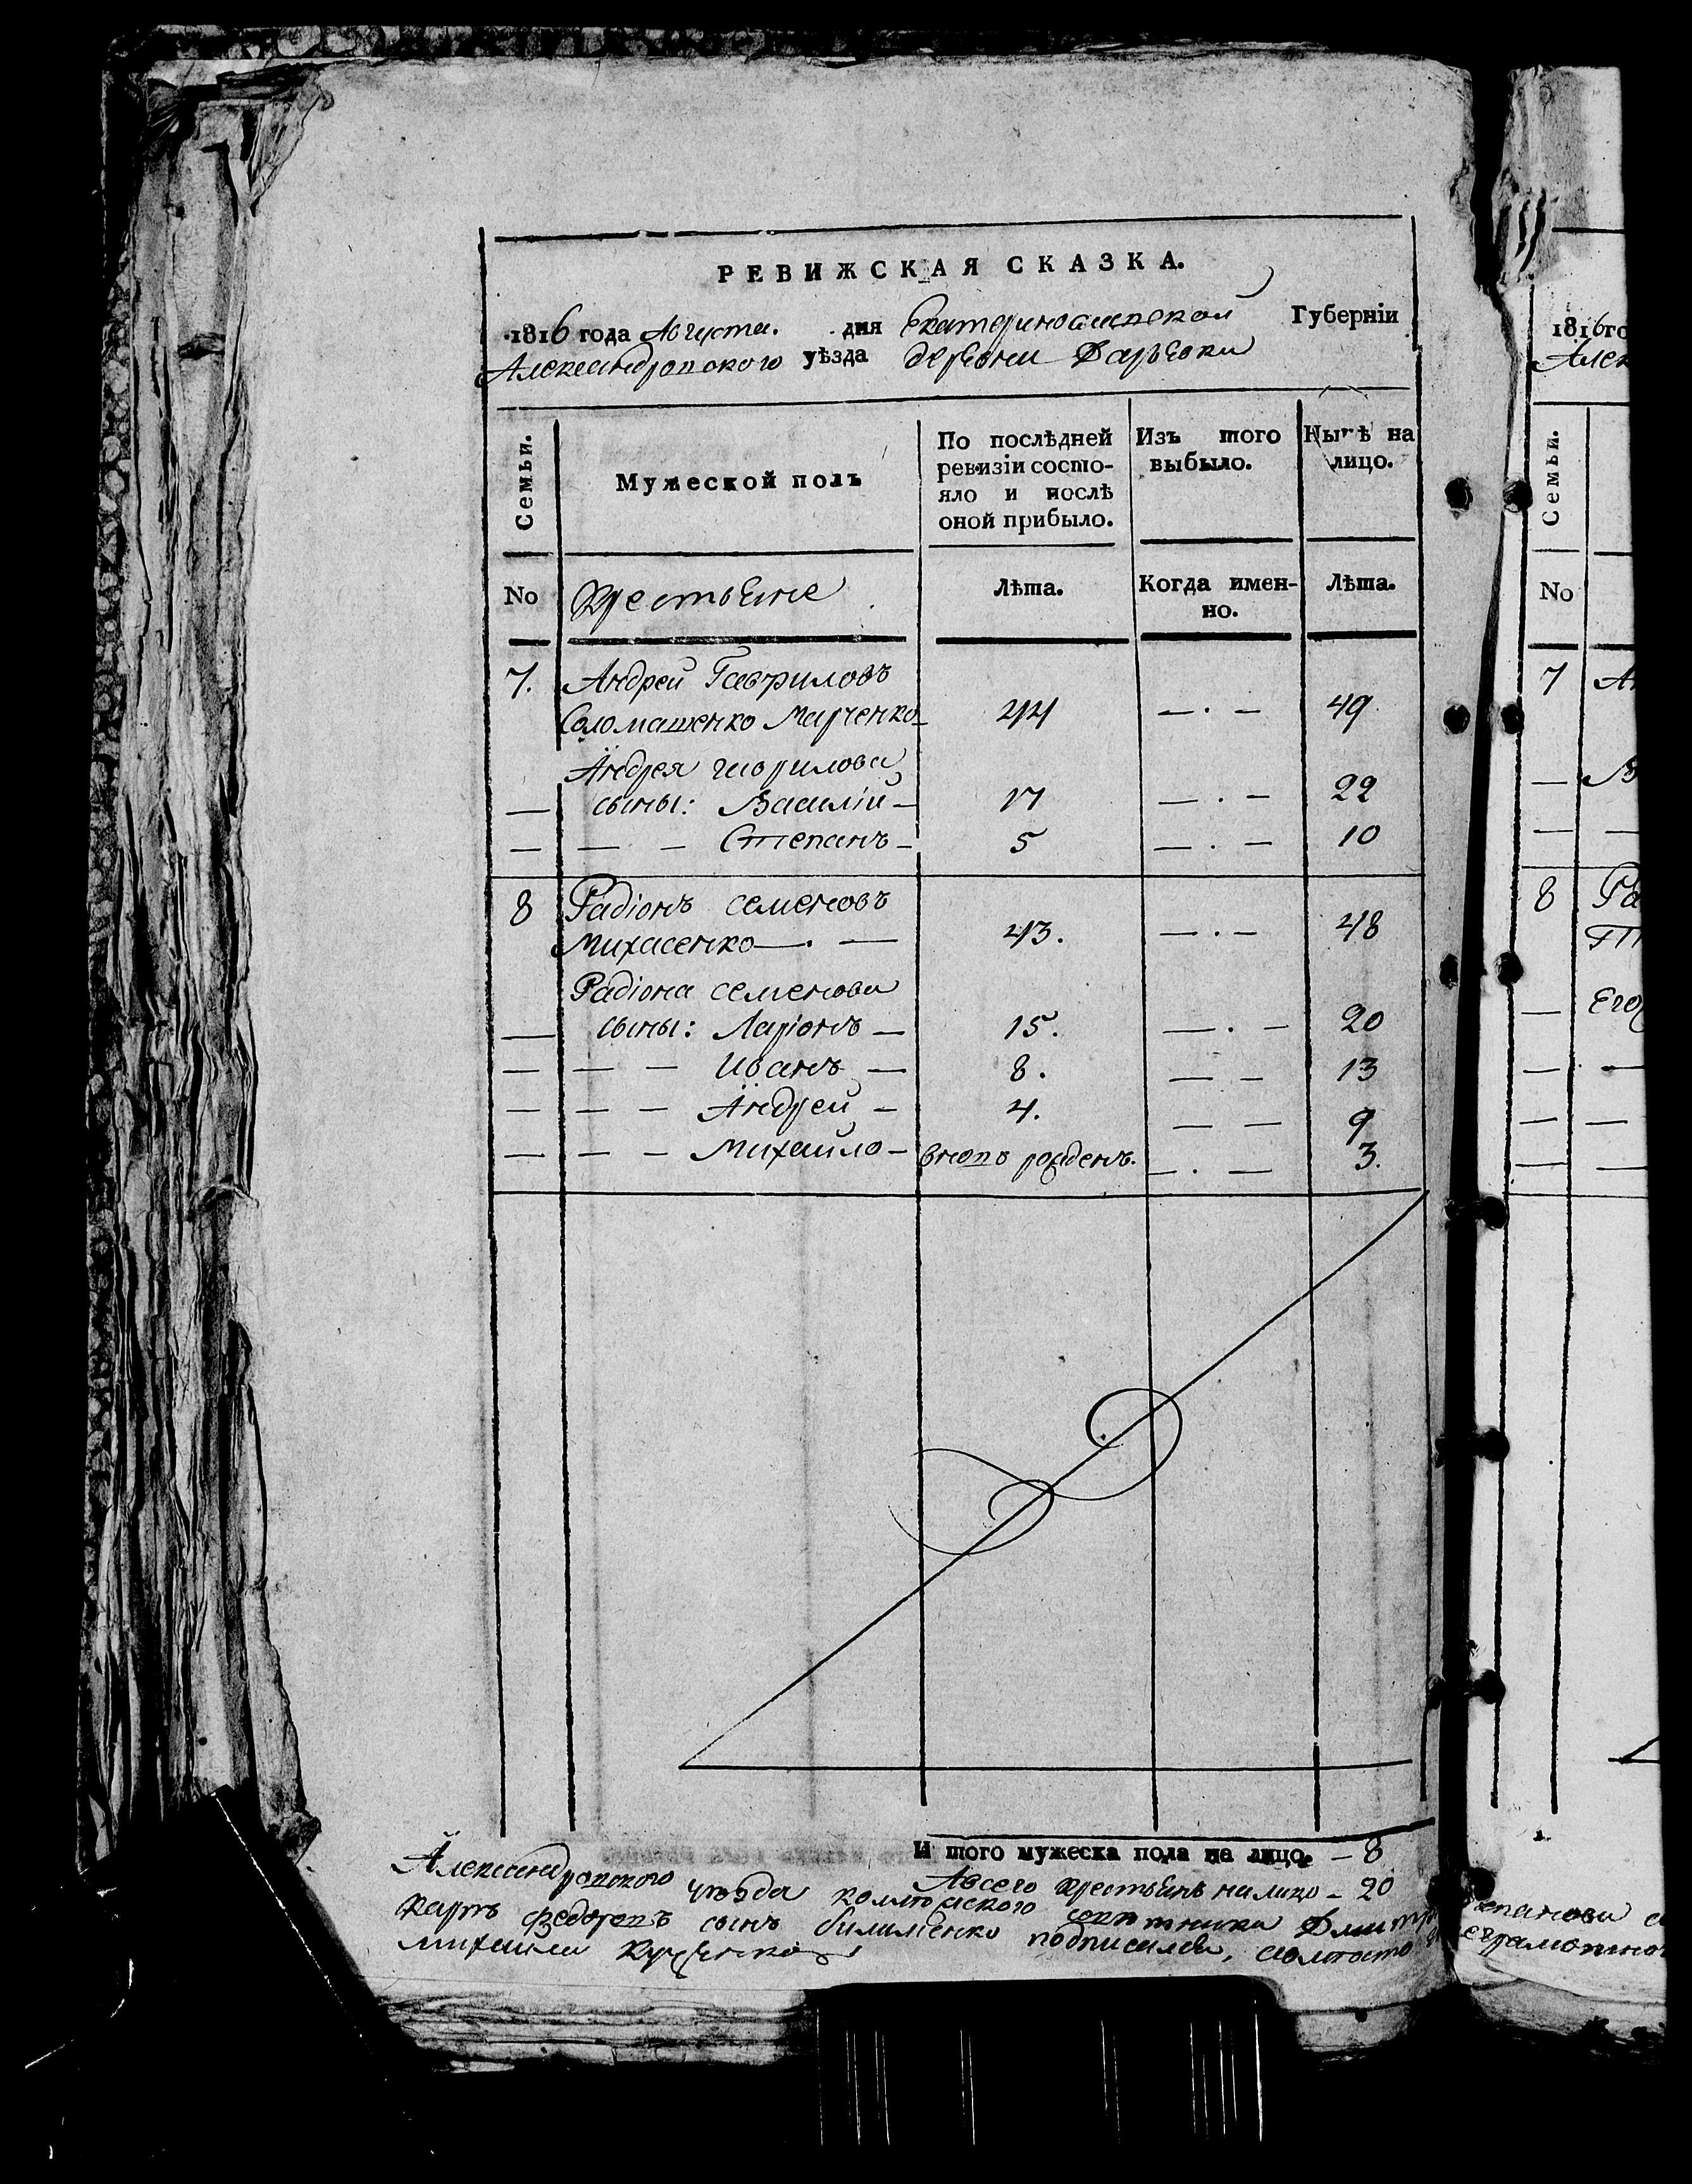 РЕВИЖСКАЯ СКАЗКА.
1816 года Августа. дня Екатеринославской Губерніи
Александровского уѣзда деревни Дарьевки
Семьи.
Мужеской полъ
По послѣдней ревизіи состояло и послѣ оной прибыло.
Изъ того выбыло.
Нынѣ на лицо.
No
Крестьяне
Лѣта.
Когда именно.
Лѣта.
7. Андрей Гавриловъ
Соломашенко Марченко 44 — . — 49
Андрея гаврилова
— сыны: Василій — 17 — . — 22
— — — Степанъ — 5 — . — 10
8 Радіонъ семеновъ
Михасенко — . — 43. — . — 48
Радіона семенова
— сыны: Ларіонъ — 15. — . — 20
— — — Иванъ — 8. — — 13
— — — Андрей — 4. — — 9
— — — Михайло — вновь рожденъ. — . — 3.
И того мужеска пола на лицо. — 8
Авсего крестьянъ налицо — 20
Александровского уѣзда
карпъ Федотовъ сынъ подписался,
Михаила
1816 го
Алек
Семьи.
No
7 Ан
— В
— —
8 Ра
Его
— —
— —
— —